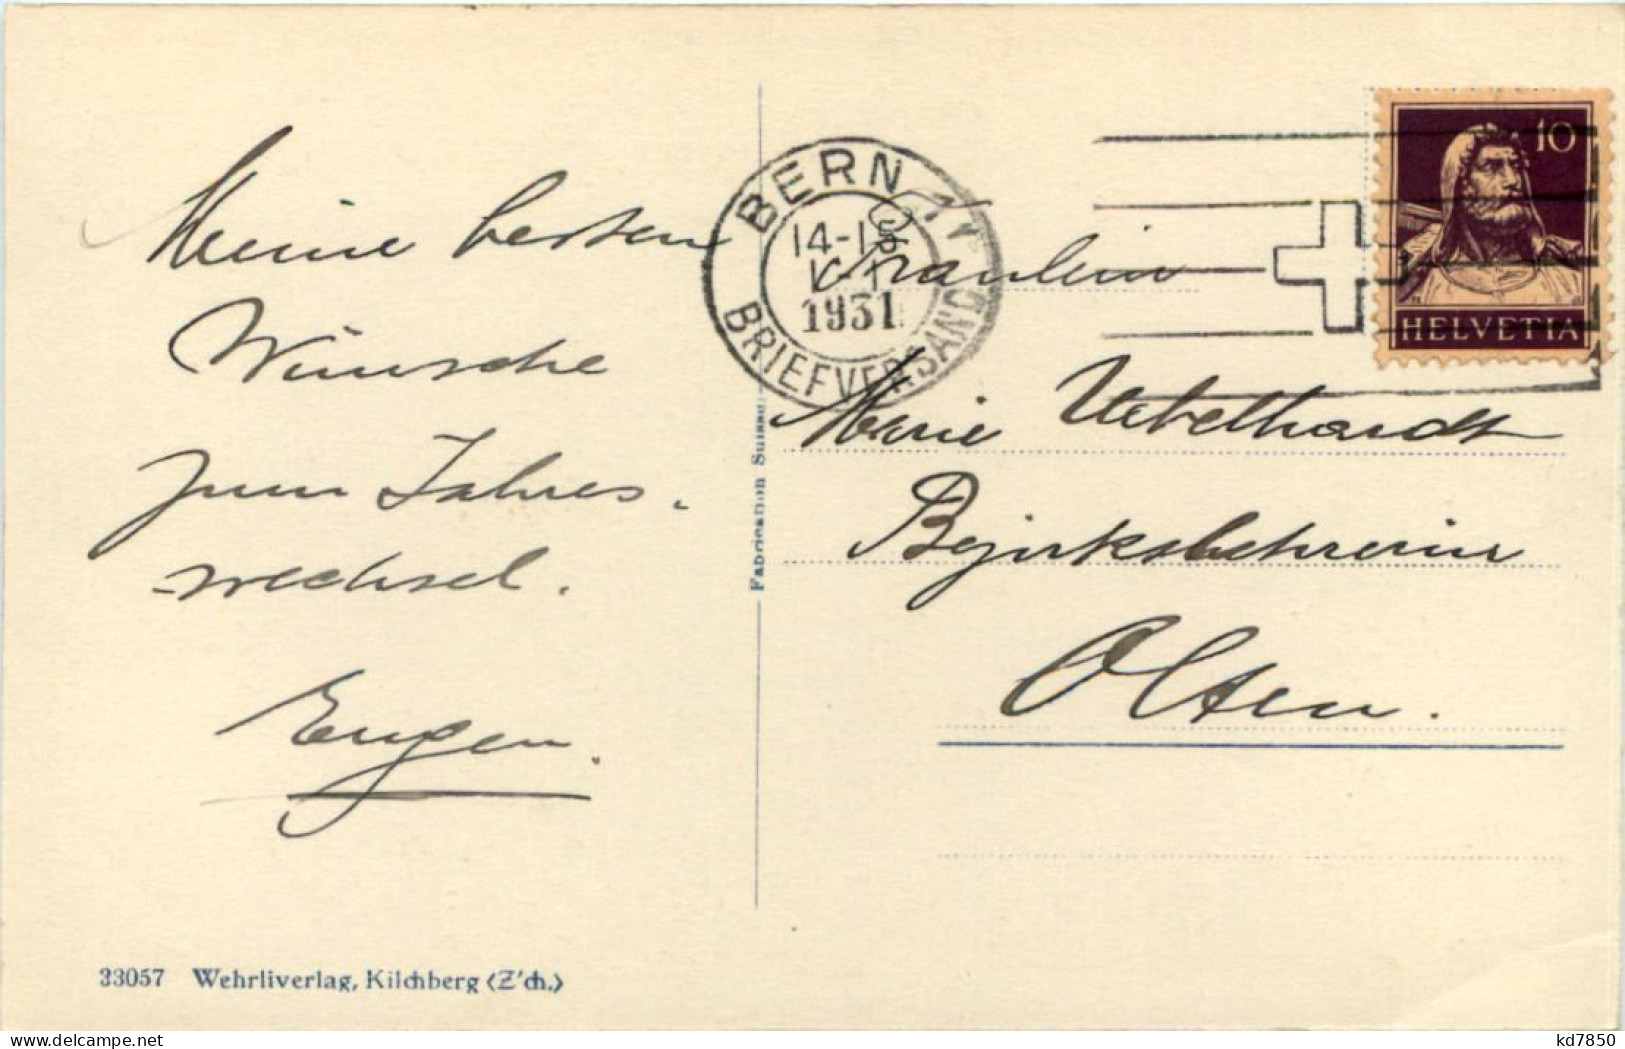 Meine besten
Wünsche
zum Jahres-
wechsel.
Eugen.
33057 Wehrliverlag, Kilchberg (Z'ch.)
Fabrication Suisse
BERN 1
14-15
I-1
1931
BRIEFVERSAND
10
HELVETIA
Fräulein
Marie Uebelhardt
Bezirkslehrerin
Olten.
kd7850